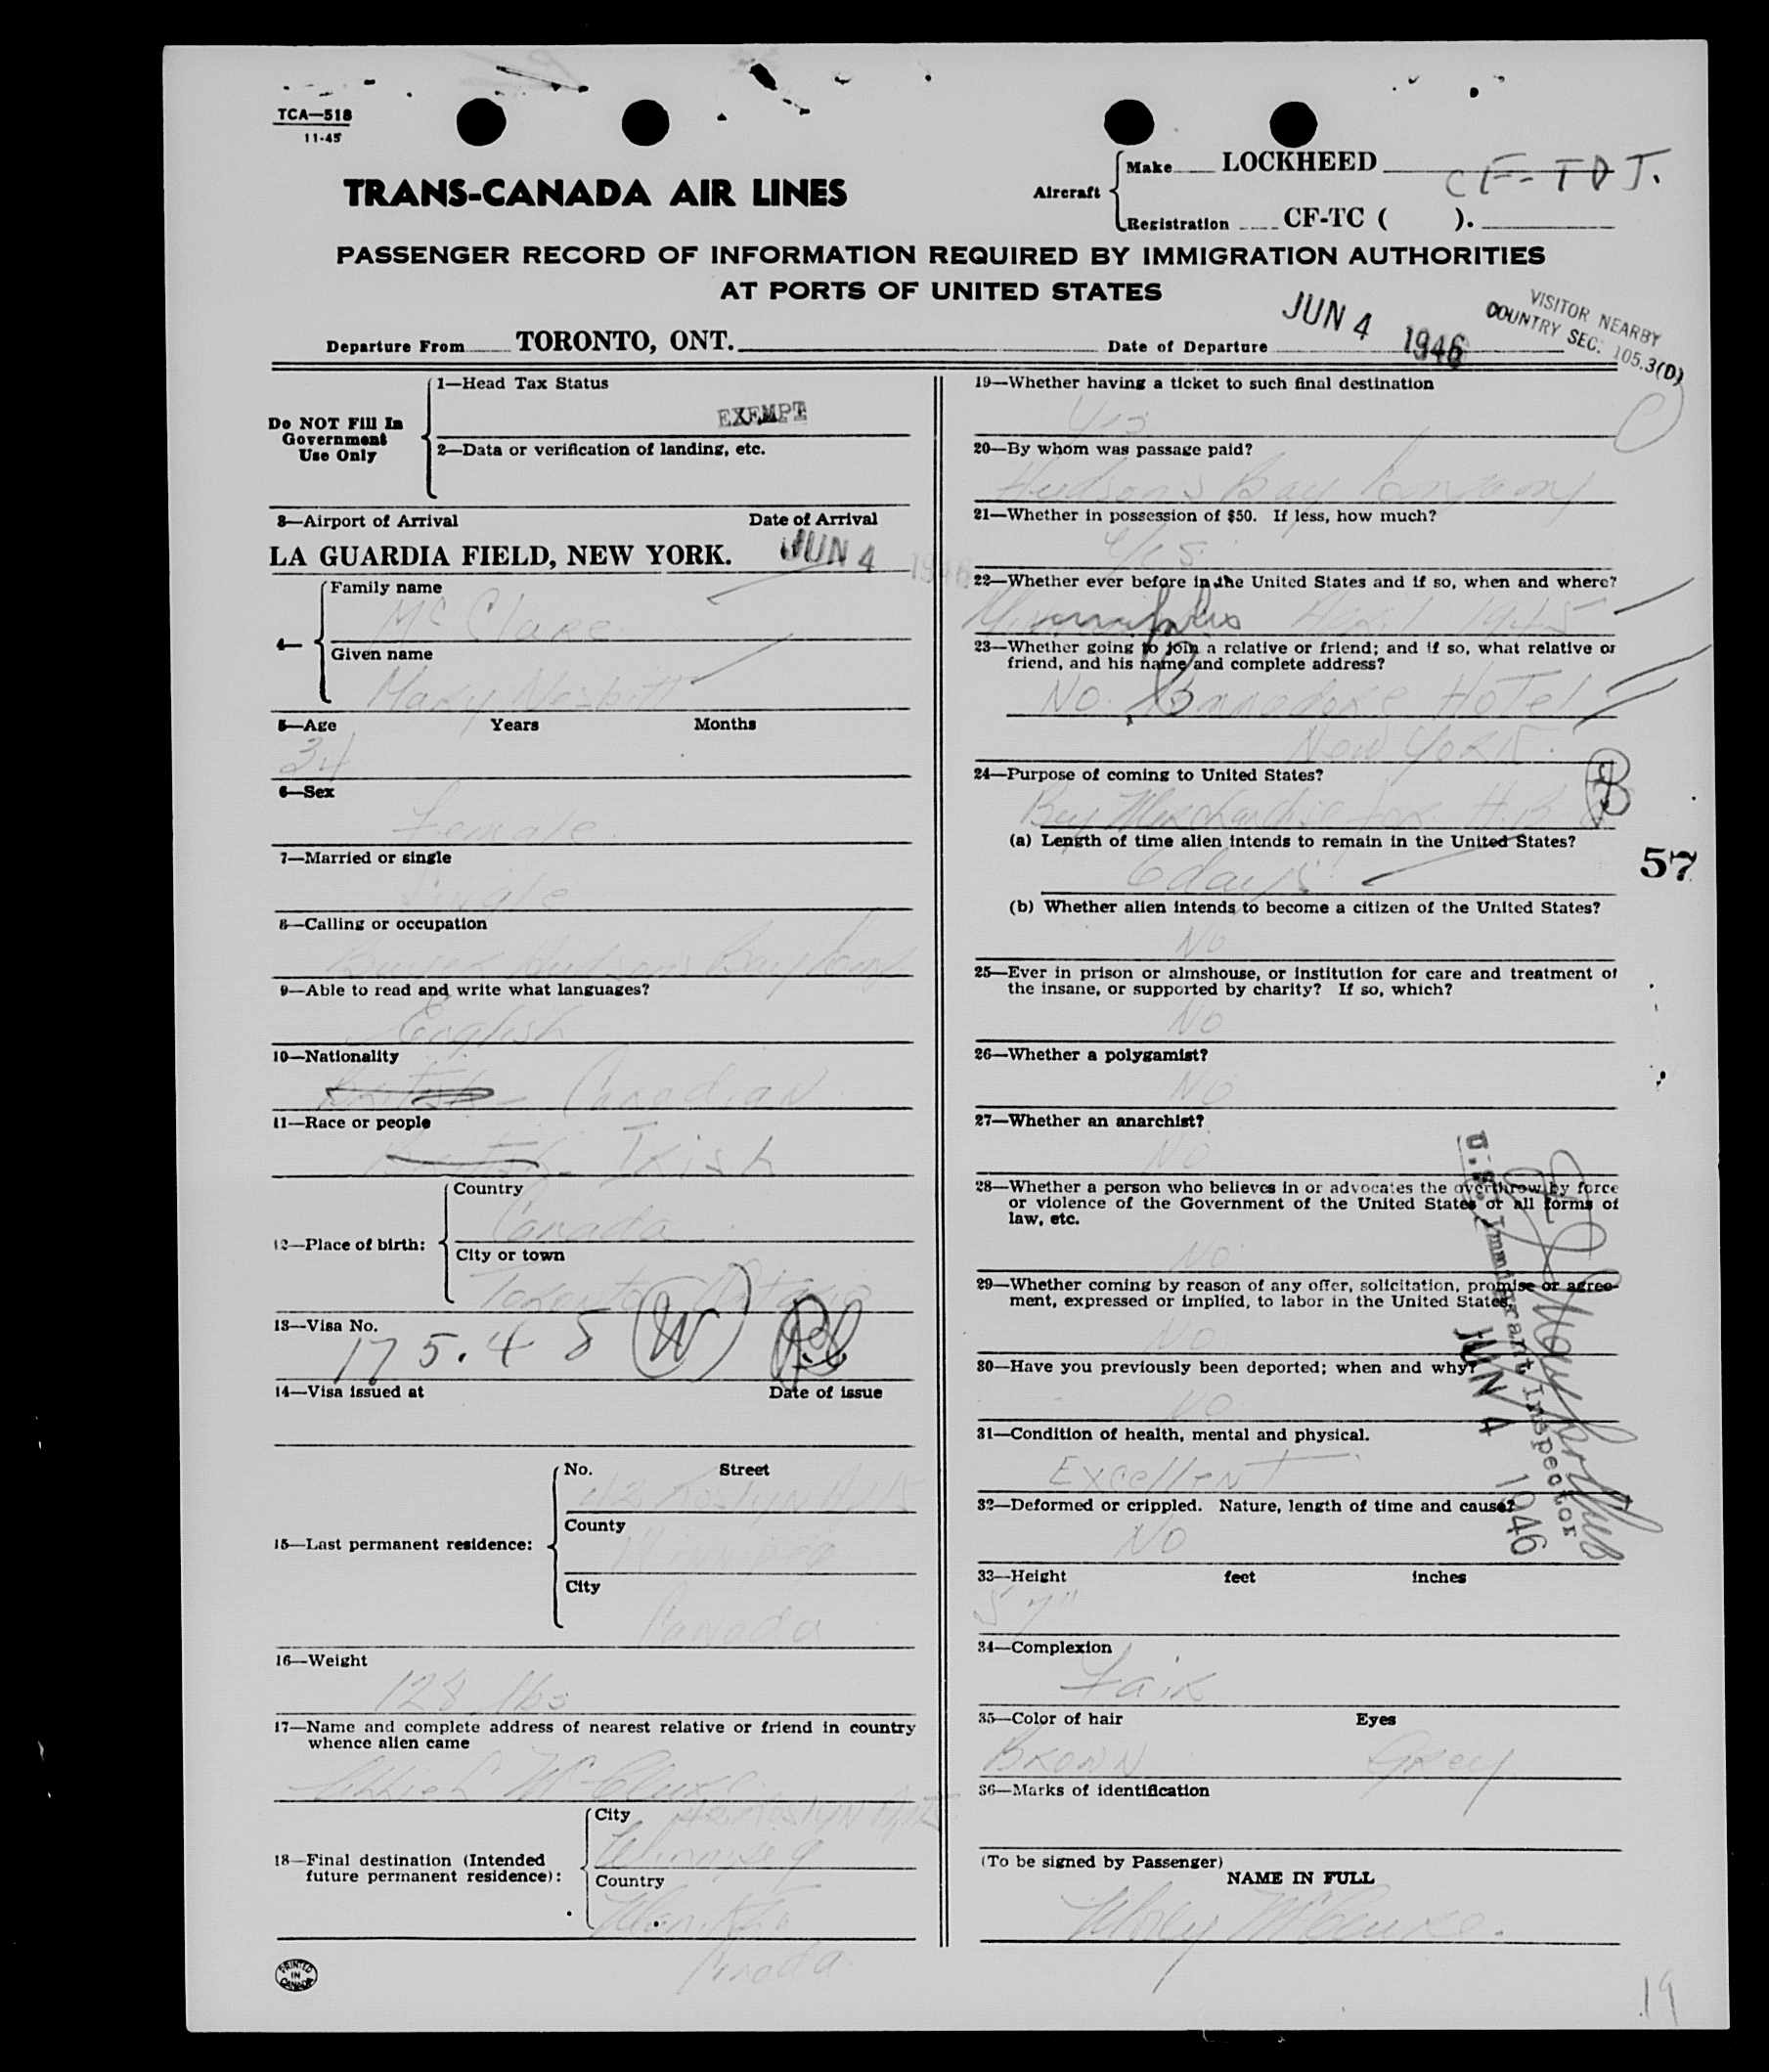 TCA—518
11-45
TRANS-CANADA AIR LINES
Aircraft
Make LOCKHEED CF-TDJ.
Registration CF-TC ( ).
PASSENGER RECORD OF INFORMATION REQUIRED BY IMMIGRATION AUTHORITIES
AT PORTS OF UNITED STATES
Departure From TORONTO, ONT.
Date of Departure JUN 4 1946
VISITOR NEARBY
COUNTRY SEC. 105.3(D)
Do NOT Fill In
Government
Use Only
1—Head Tax Status
EXEMPT
2—Data or verification of landing, etc.
3—Airport of Arrival Date of Arrival
LA GUARDIA FIELD, NEW YORK. JUN 4 1946
4—
Family name
Given name
Mary Nesbitt
5—Age Years Months
34
6—Sex
Female
7—Married or single
Single
8—Calling or occupation
Buyer Hudsons Bay
9—Able to read and write what languages?
English
10—Nationality
British Canadian
11—Race or people
Irish
12—Place of birth:
Country
Canada
City or town
Toronto Ontario
13—Visa No.
175.48 W
14—Visa issued at Date of issue
15—Last permanent residence:
No. Street
County
Winnipeg
City
Canada
16—Weight
128 lbs
17—Name and complete address of nearest relative or friend in country
whence alien came
18—Final destination (Intended
future permanent residence):
City
Winnipeg
Country
Manitoba
Canada
PRINTED
IN
CANADA
19—Whether having a ticket to such final destination
Yes
20—By whom was passage paid?
Hudson's Bay Company
21—Whether in possession of $50. If less, how much?
Yes
22—Whether ever before in the United States and if so, when and where?
April 1945
23—Whether going to join a relative or friend; and if so, what relative or
friend, and his name and complete address?
No. Hotel
New York.
24—Purpose of coming to United States?
Buy Merchandise for H.B.
(a) Length of time alien intends to remain in the United States?
6 days
57
(b) Whether alien intends to become a citizen of the United States?
No
25—Ever in prison or almshouse, or institution for care and treatment of
the insane, or supported by charity? If so, which?
No
26—Whether a polygamist?
No
27—Whether an anarchist?
No
28—Whether a person who believes in or advocates the overthrow by force
or violence of the Government of the United States or all forms of
law, etc.
No
29—Whether coming by reason of any offer, solicitation, promise or agree-
ment, expressed or implied, to labor in the United States.
No
30—Have you previously been deported; when and why?
No
U.S. Immigrant Inspector
JUN 4 1946
31—Condition of health, mental and physical.
Excellent
32—Deformed or crippled. Nature, length of time and cause?
No
33—Height feet inches
5 7"
34—Complexion
Fair
35—Color of hair Eyes
Brown Grey
36—Marks of identification
(To be signed by Passenger)
NAME IN FULL
Mary
19